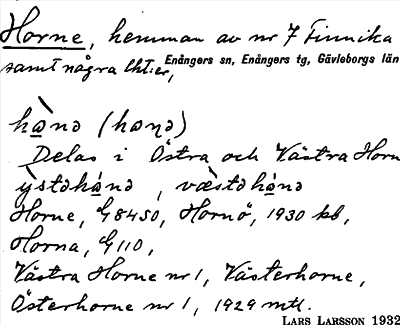 Horne, hemman av nr 7 Finnika
samt några lht:er,
Enångers sn, Enångers tg, Gävleborgs län
hànə (haηə)
Delas i Östra och Västra Horn
ỳstəhánə, væ̀stəhánə
Horne, G8450, Hornö, 1930 kb,
Horna, G110,
Västra Horne nr 1, Västerhorne,
Österhorne nr 1, 1929 mtl.
LARS LARSSON 1932